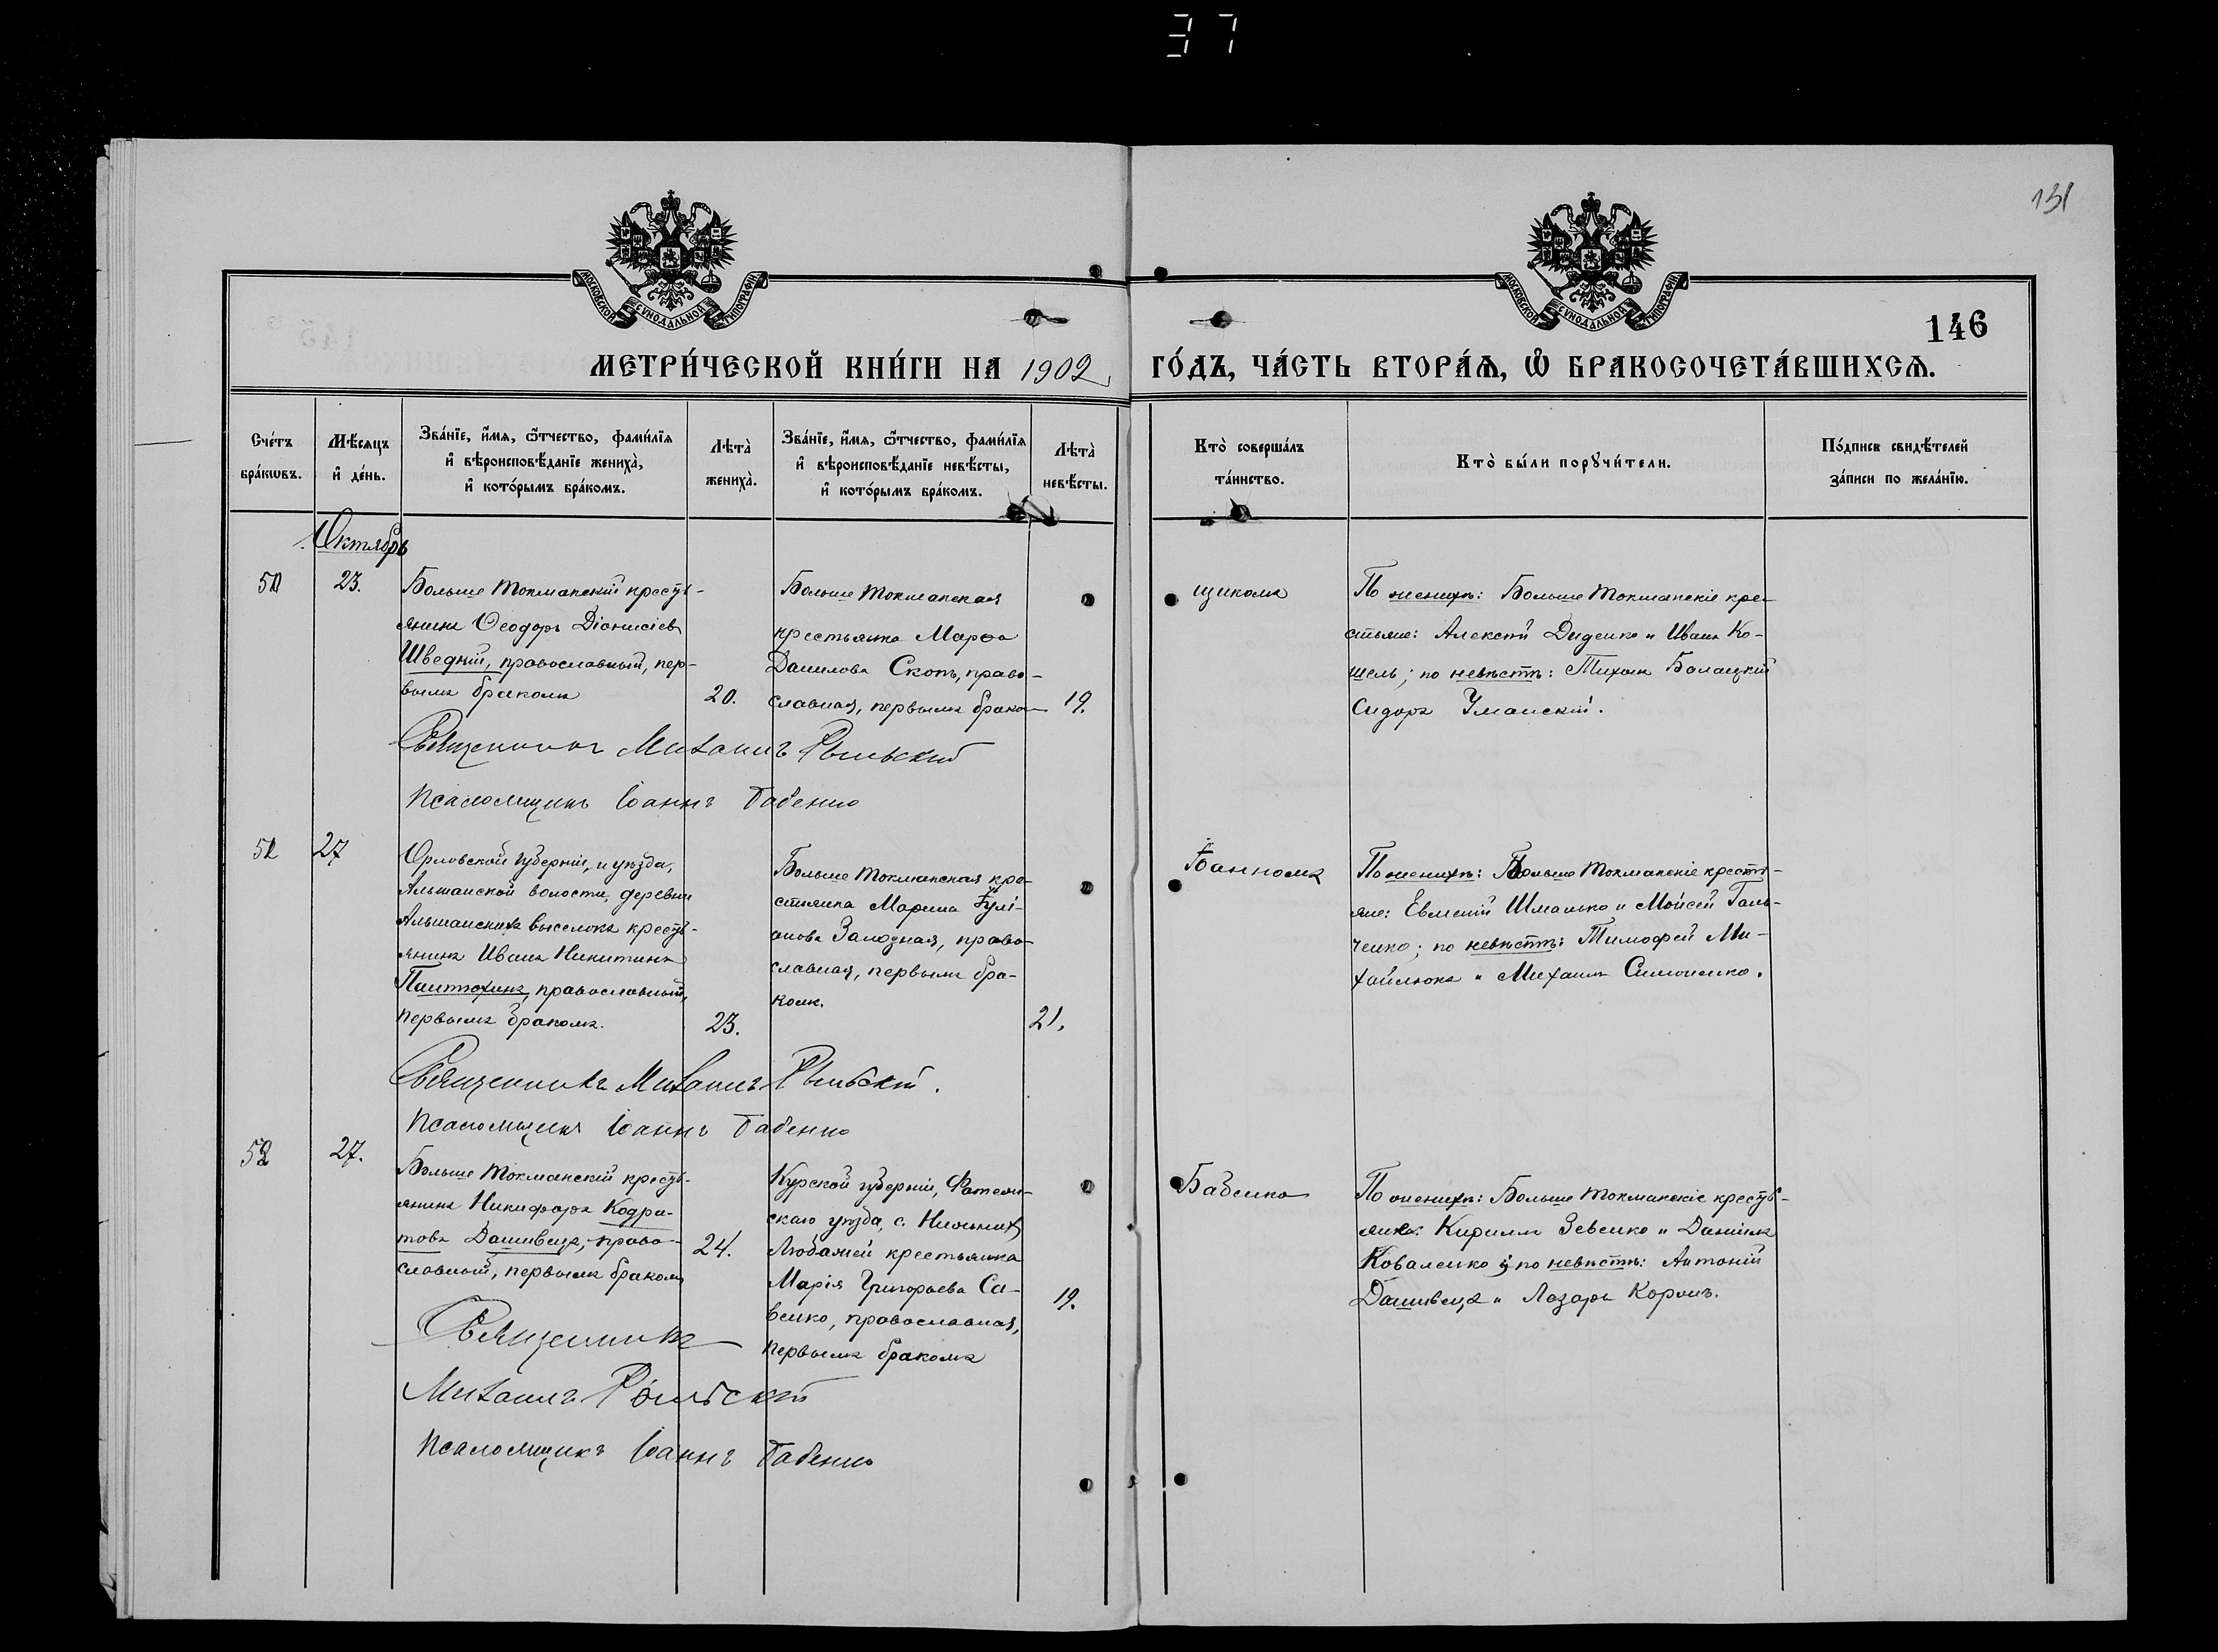 37
131
146
МОСКОВСКОЙ СѴНОДАЛЬНОЙ ТИПОГРАФІИ
МОСКОВСКОЙ СѴНОДАЛЬНОЙ ТИПОГРАФІИ
МЕТРИ́ЧЕСКОЙ КНИ́ГИ НА 1902 ГО́ДЪ, ЧА́СТЬ ВТОРА́Ѧ, Ѽ БРАКОСОЧЕТА́ВШИХСѦ.
Сче́тъ бра́кѡвъ.
Мѣ́сяцъ и҆ де́нь.
Зва́нїе, и҆́мѧ, ѻ҆́тчество, фами́лїѧ
и҆ вѣроисповѣ́данїе жениха̀,
и҆ кото́рымъ бра́комъ.
Лѣта̀ жениха̀.
Зва́нїе, и҆́мѧ, ѻ҆́тчество, фами́лїѧ
и҆ вѣроисповѣ́данїе невѣ́сты,
и҆ кото́рымъ бра́комъ.
Лѣта̀ невѣ́сты.
Кто̀ соверша́лъ та́инство.
Кто̀ бы́ли порꙋчи́тели.
По́дпись свидѣ́телей за́писи по жела́нїю.
Октябрь
50
23.
Больше Токмакскій кресть-
янинъ Ѳеодоръ Діонисіевъ
Шведкій, православный, пер-
вымъ бракомъ
20.
Больше Токмакская
крестьянка Марѳа
Данилова Скопъ, право-
славная, первымъ брако-
19.
щикомъ
По женихѣ: Больше Токмакскіе кре-
стьяне: Алексѣй Диденко и Иванъ Ко-
шель; по невѣстѣ: Тихонъ Балацкій
Сидоръ Уманскій.
Священникъ Михаилъ Рыльскій
Псаломщикъ Іоаннъ Бабенко
51
27
Орловской губерніи, и уѣзда,
Альшанской волости, деревни
Альшанскихъ выселокъ кресть-
янинъ Иванъ Никитинъ
Пантюхинъ, православный,
первымъ бракомъ.
23.
Больше Токмакская кре-
стьянка Марина
анова Заводная, право-
славная, первымъ бра-
комъ.
21.
По женихѣ: Больше Токмакскіе кресть-
яне: Евменій Шманько и Моисей Галь-
ченко; по невѣстѣ: Тимофей Ми-
хайлюкъ и Михаилъ Симоненко.
Священникъ Михаилъ Рыльскій.
Псаломщикъ Іоаннъ Бабенко
52
27.
Больше Токмакскій кресть-
янинъ Никифоръ Кодра-
товъ Дашивецъ, право-
славный, первымъ бракомъ
24.
Курской губерніи, Фатежн-
скаго уѣзда, с. Нижнихъ
Любажей крестьянка
Марія Григорьева Са-
венко, православная,
первымъ бракомъ
19.
Бабенко
По женихѣ: Больше Токмакскіе кресть-
яне: Кириллъ Зевенко и Даніилъ
Коваленко; по невѣстѣ: Антоній
Дашивецъ и Лазарь
Священникъ
Михаилъ Рыльскій
Псаломщикъ Іоаннъ Бабенко